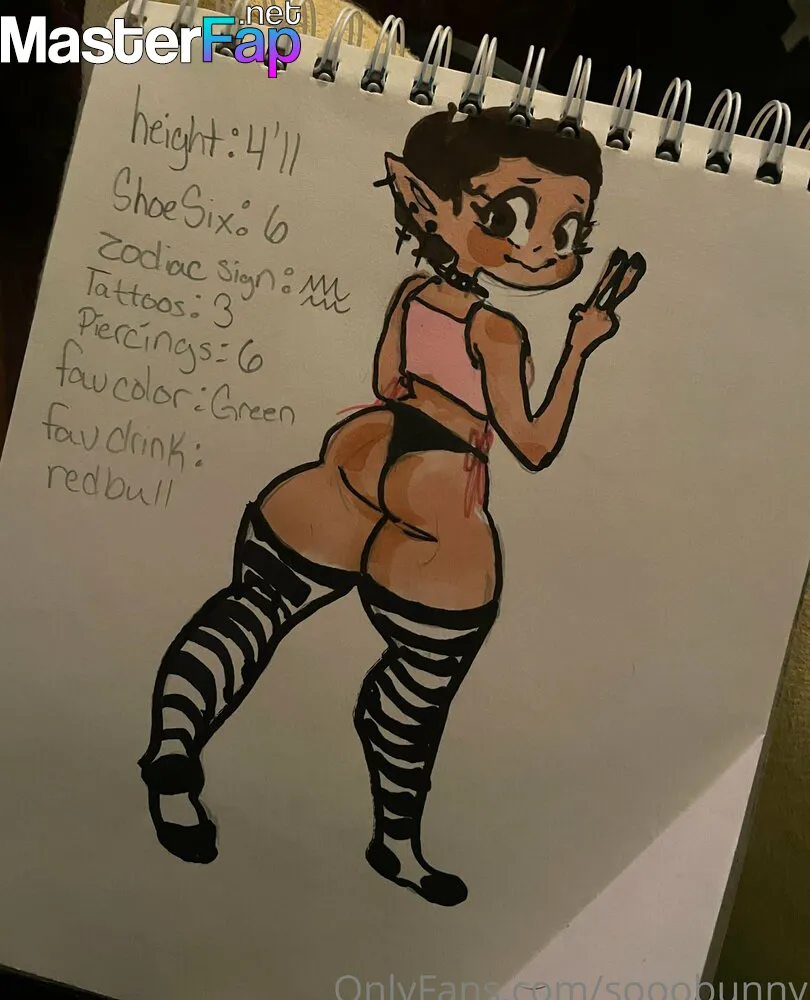 MasterFap.net
height: 4'11
Shoe Six: 6
Zodiac sign: ♒
Tattoos: 3
Piercings: 6
fav color: Green
fav drink:
redbull
OnlyFans.com/sooobunny